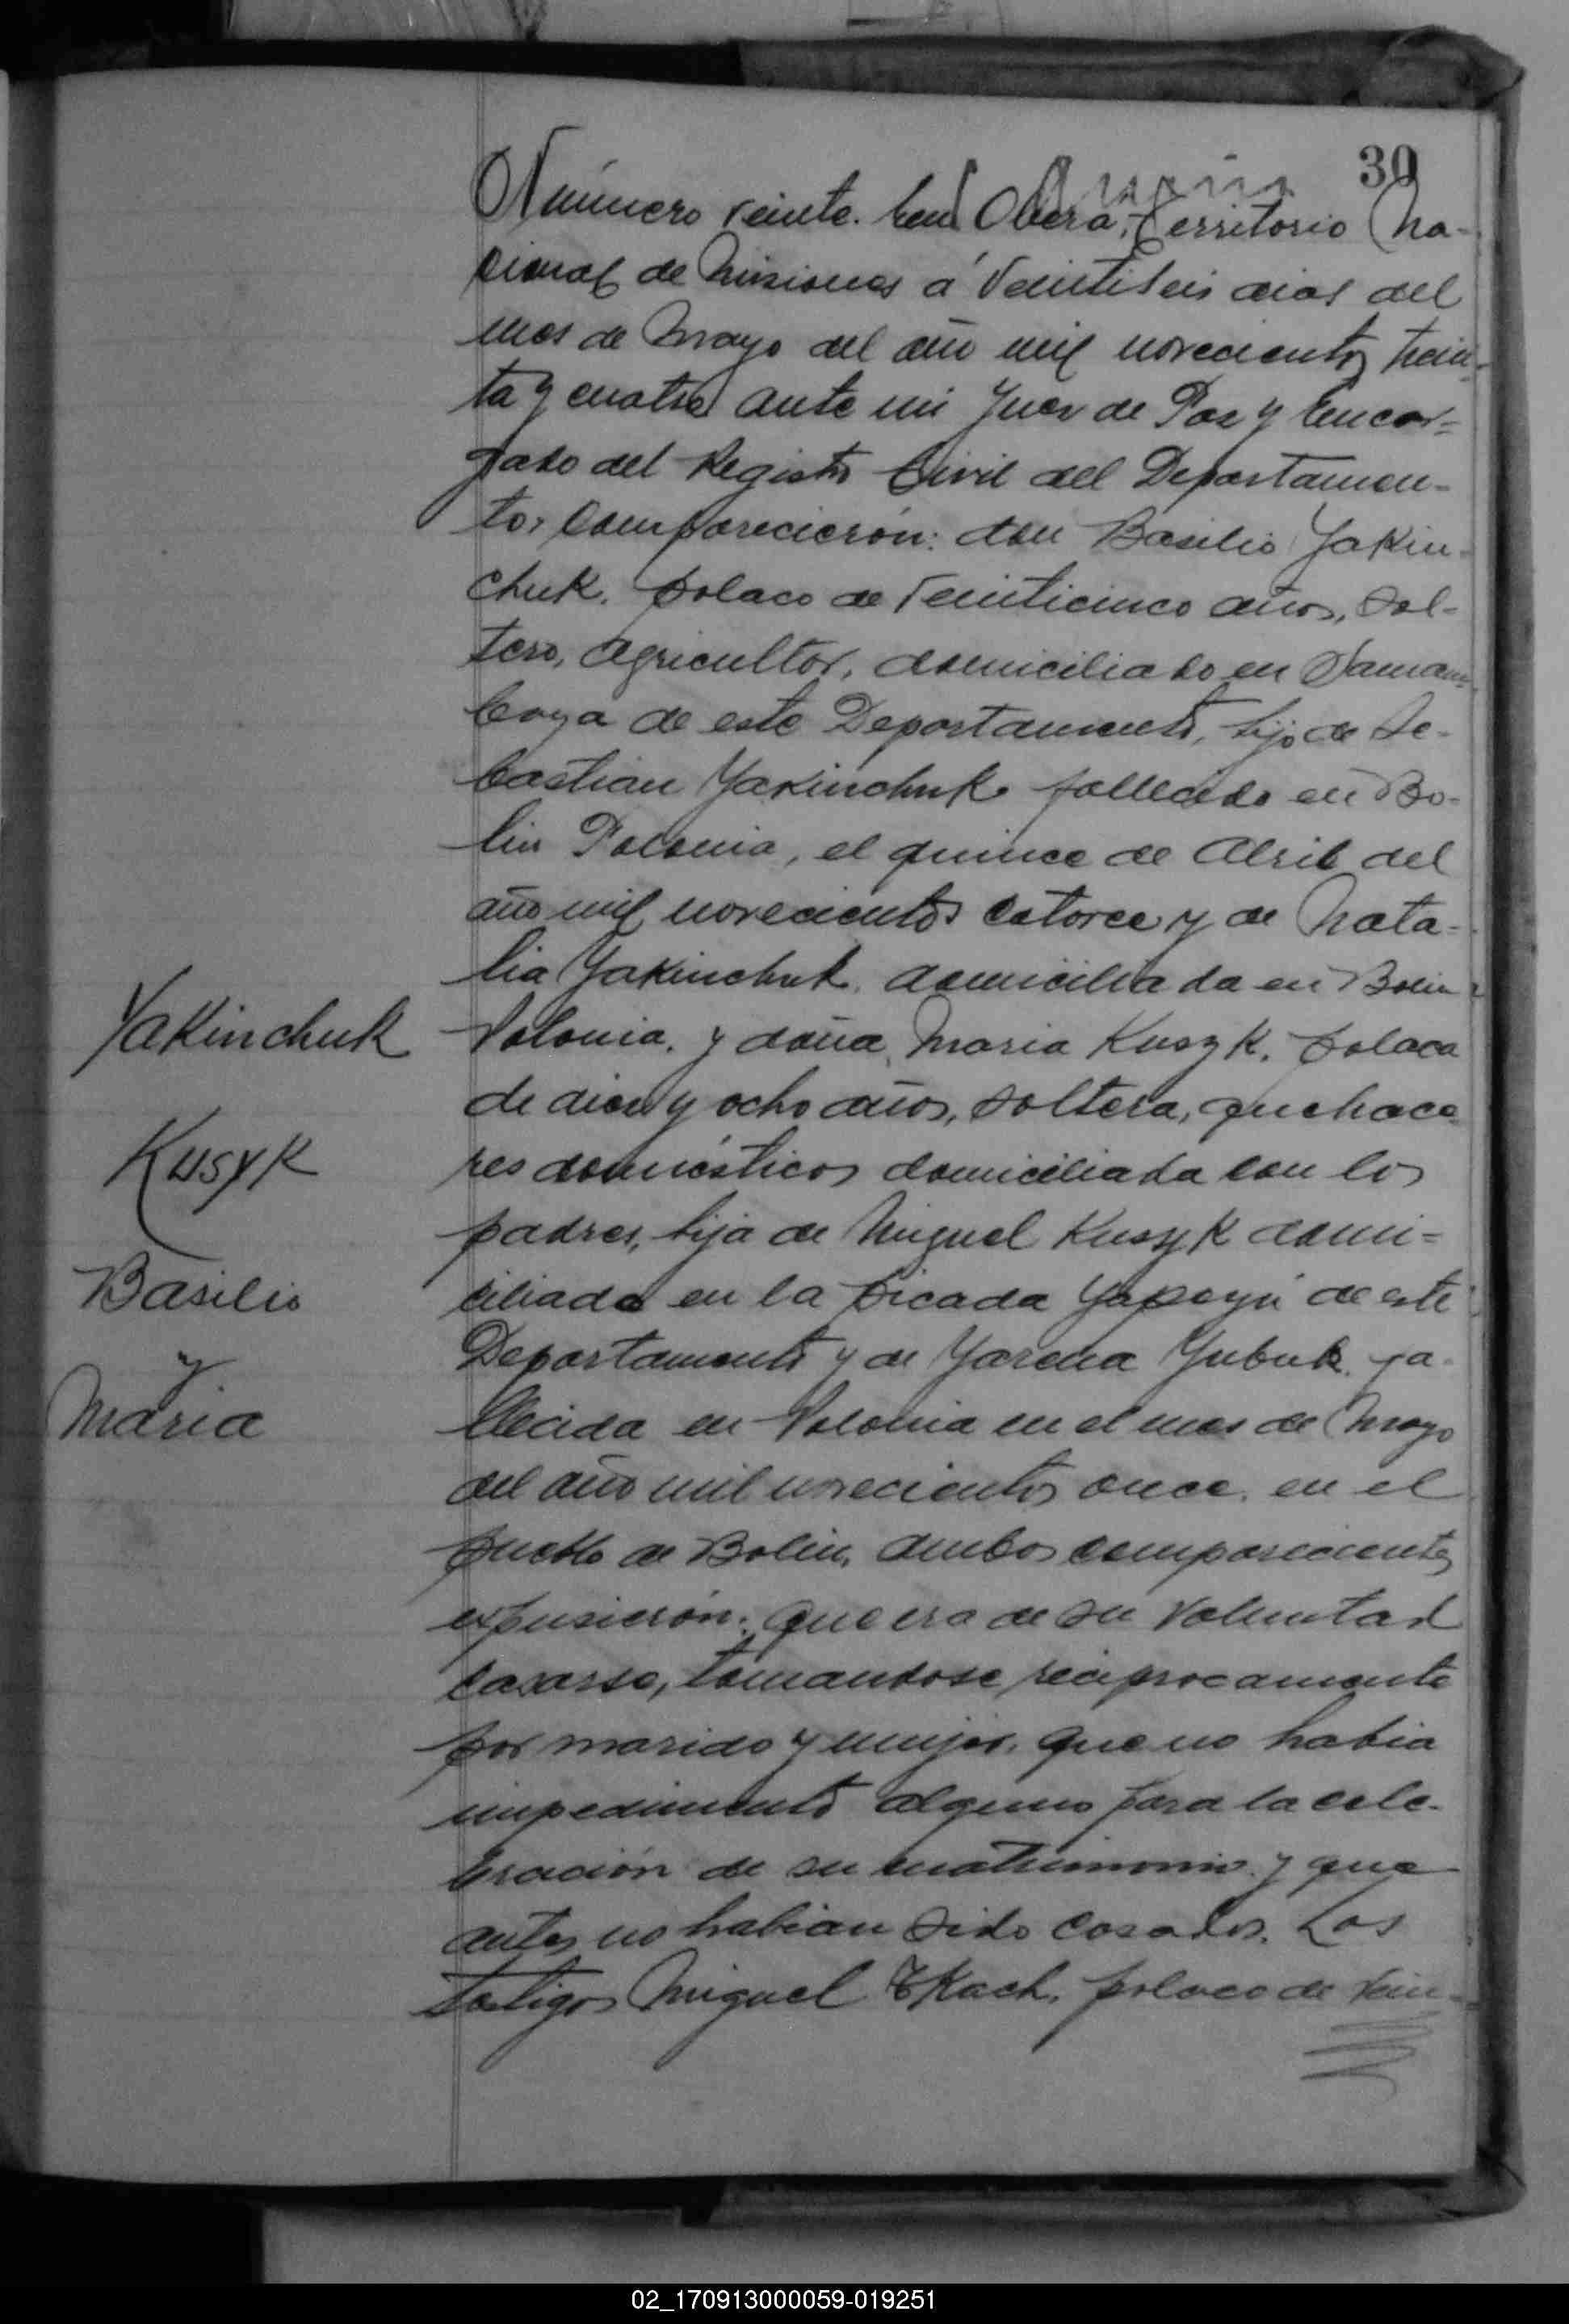 30
Número veinte. En Oberá, Territorio Na-
cional de Misiones á veintiseis dias del
mes de Mayo del año mil novecientos trein-
ta y cuatro ante mi Juez de Paz y Encar-
gado del Registro Civil del Departamen-
to, comparecieron: don Basilio Yakin-
chuk, polaco de veinticinco años, sol-
tero, agricultor, domiciliado en Samam-
baya de este Departamento, hijo de Se-
bastian Yakinchuk fallecido en Bo-
lin Polonia, el quince de Abril del
año mil novecientos catorce y de Nata-
lia Yakinchuk, domiciliada en Bolin
Polonia, y doña Maria Kusyk, polaca
de diez y ocho años, soltera, quehace-
res domésticos domiciliada con los
padres, hija de Miguel Kusyk domi-
ciliado en la Picada Yapeyú de este
Departamento y de Yarena Yubuk, fa-
llecida en Polonia en el mes de Mayo
del año mil novecientos once, en el
pueblo de Bolin, ambos comparecientes
expusieron: que era de su voluntad
casarse, tomandose reciprocamente
por marido y mujer, que no habia
impedimento alguno para la cele-
bración de su matrimonio y que
antes no habian sido casados. Los
testigos Miguel Tkach, polaco de vein-
Yakinchuk
Kusyk
Basilio
y
Maria
02_170913000059-019251